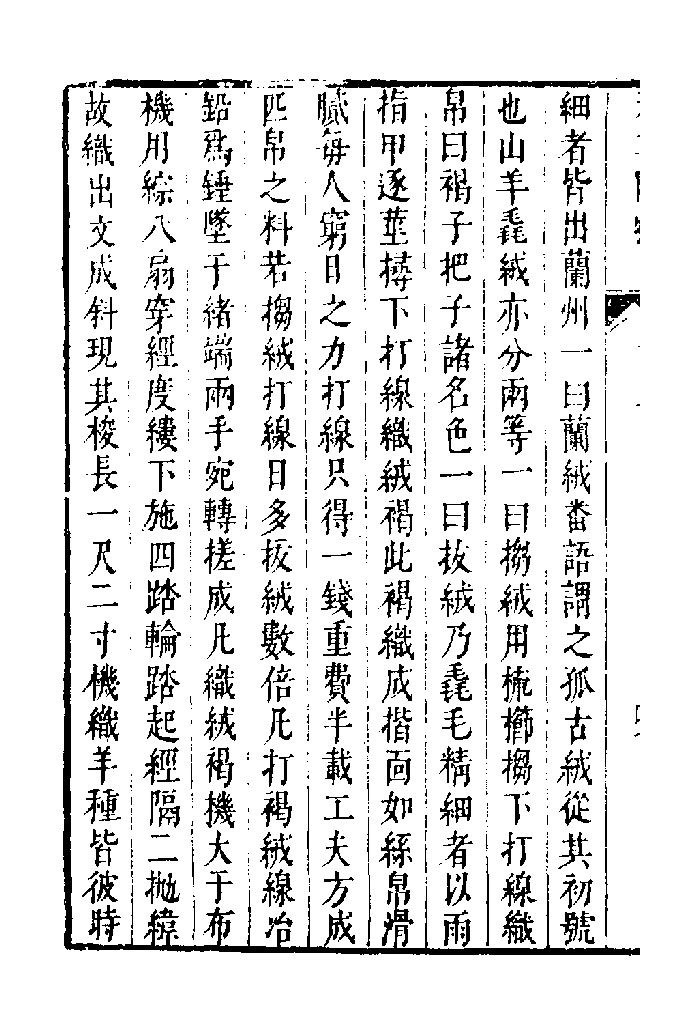 細者皆出蘭州一曰蘭絨番語謂之孤古絨從其初號
也山羊毳絨亦分兩等一曰搊絨用梳櫛搊下打線織
帛曰褐子把子諸名色一曰拔絨乃毳毛精細者以兩
指甲逐莖撏下打線織絨褐此褐織成揩面如絲帛滑
膩每人窮日之力打線只得一錢重費半載工夫方成
匹帛之料若搊絨打線日多拔絨數倍凡打褐絨線冶
鉛爲錘墜于緒端兩手宛轉搓成凡織絨褐機大于布
機用綜八扇穿經度縷下施四踏輪踏起經隔二拋緯
故織出文成斜現其梭長一尺二寸機織羊種皆彼時